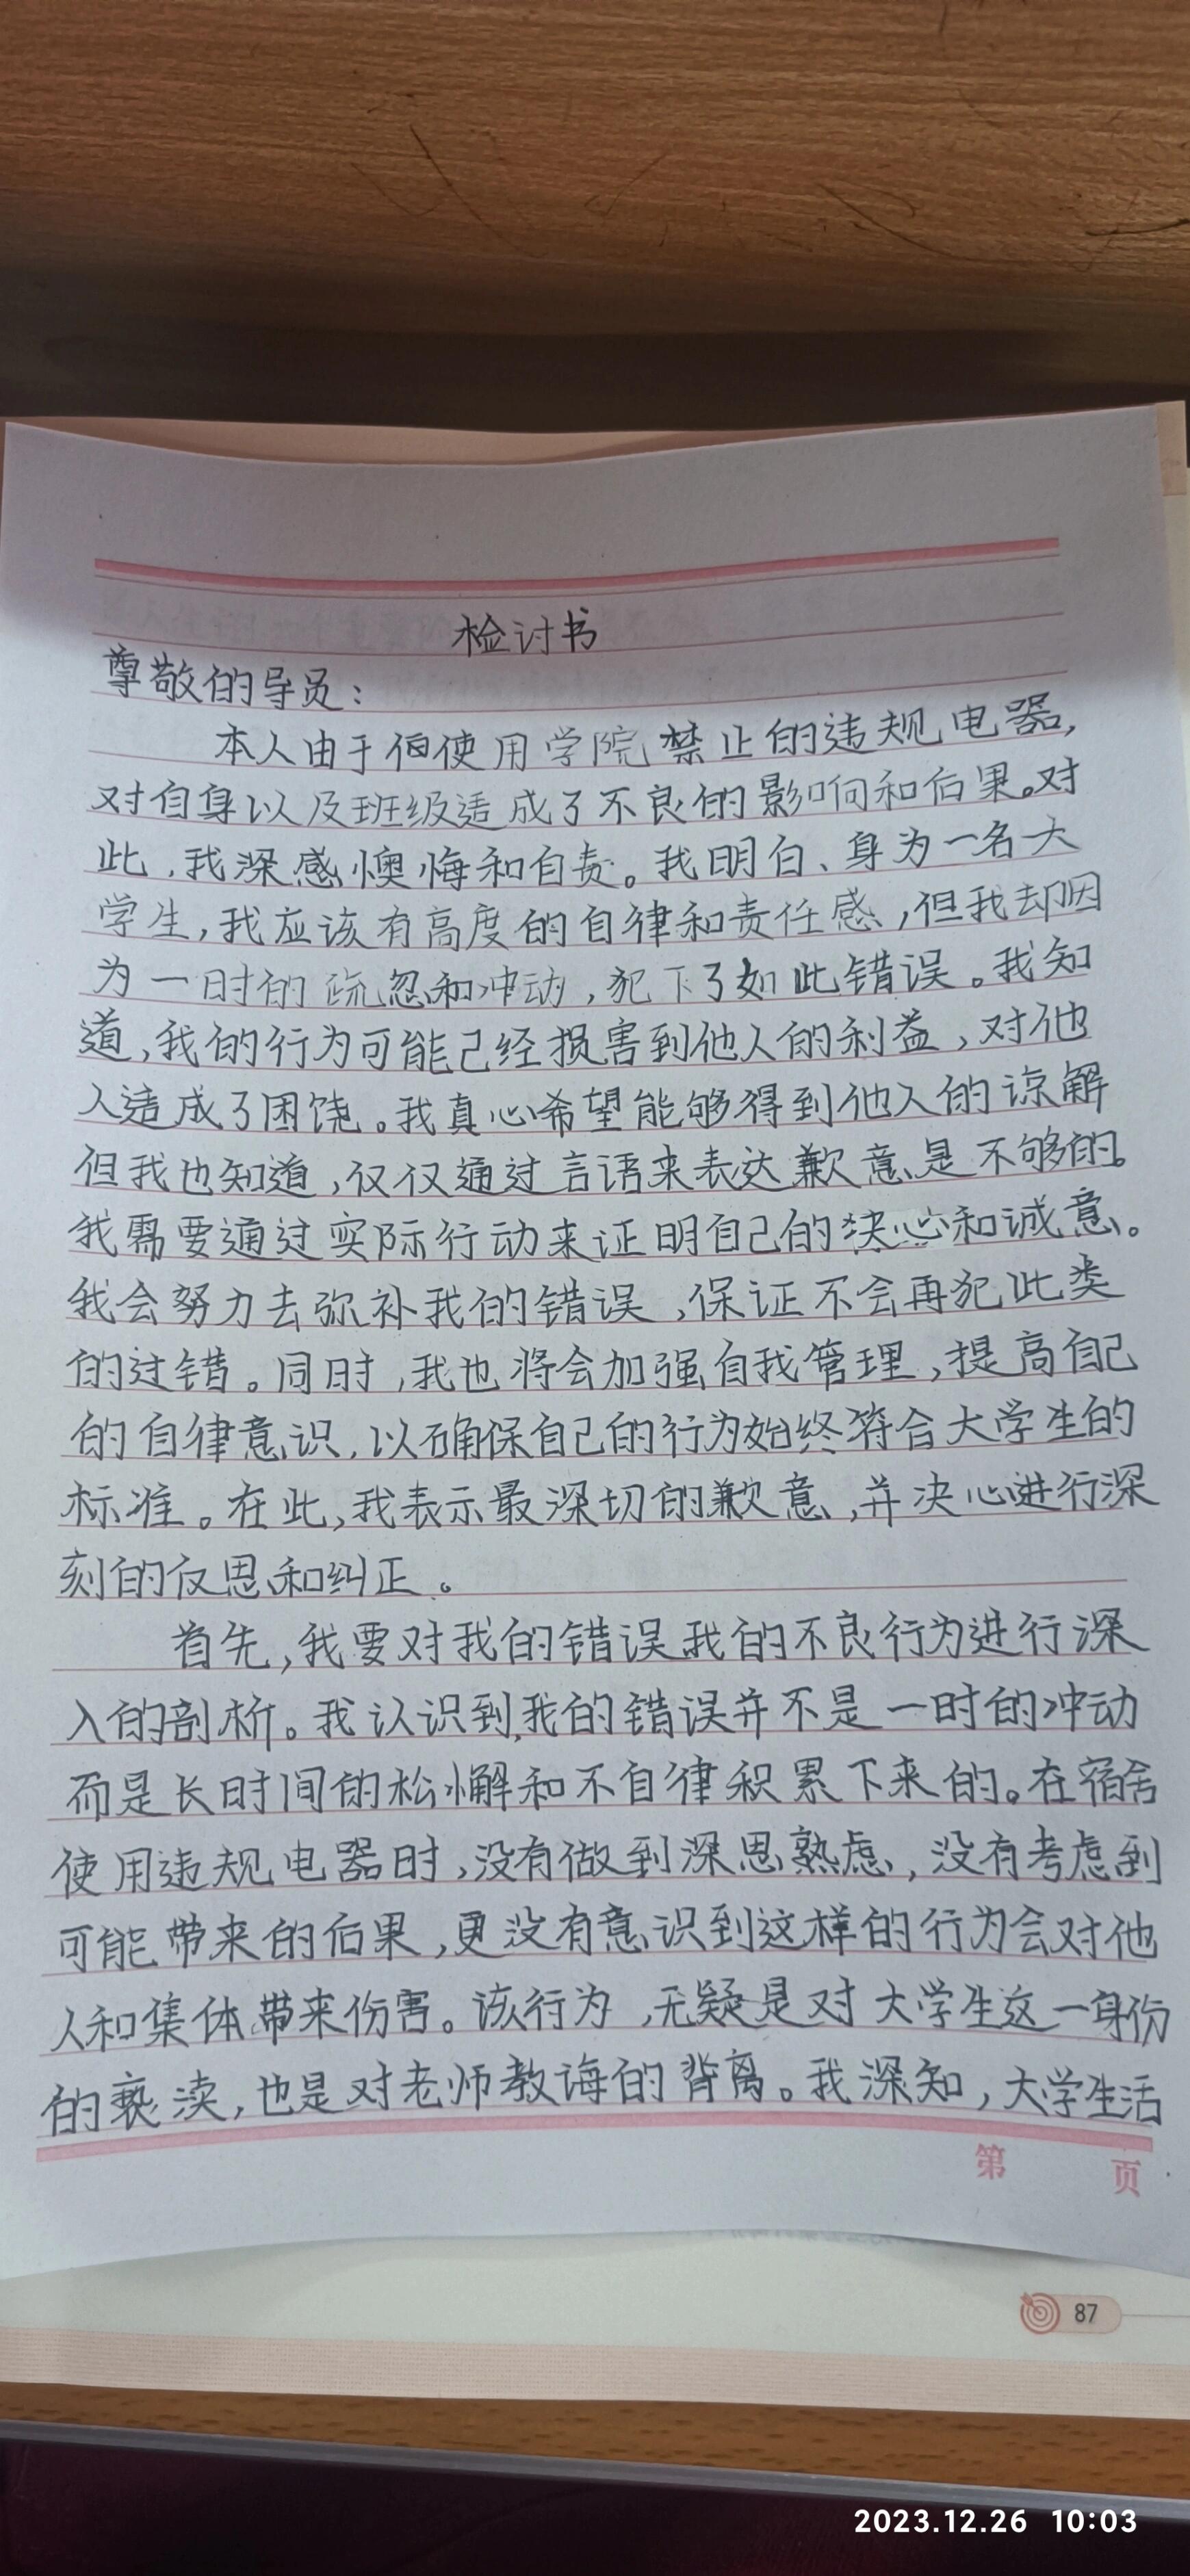 检讨书
尊敬的导员：
本人由于使用学院禁止的违规电器，
对自身以及班级造成了不良的影响和后果。对
此，我深感懊悔和自责。我明白、身为一名大
学生，我应该有高度的自律和责任感，但我却因
为一时的疏忽和冲动，犯下了如此错误。我知
道，我的行为可能已经损害到他人的利益，对他
人造成了困饶。我真心希望能够得到他人的谅解
但我也知道，仅仅通过言语来表达歉意是不够的。
我需要通过实际行动来证明自己的决心和诚意。
我会努力去弥补我的错误，保证不会再犯此类
的过错。同时，我也将会加强自我管理，提高自己
的自律意识，以确保自己的行为始终符合大学生的
标准。在此，我表示最深切的歉意，并决心进行深
刻的反思和纠正。
首先，我要对我的错误我的不良行为进行深
入的剖析。我认识到，我的错误并不是一时的冲动
而是长时间的松懈和不自律积累下来的。在宿舍
使用违规电器时，没有做到深思熟虑，没有考虑到
可能带来的后果，更没有意识到这样的行为会对他
人和集体带来伤害。该行为，无疑是对大学生这一身份
的亵渎，也是对老师教诲的背离。我深知，大学生活
第 页
87
2023.12.26 10:03